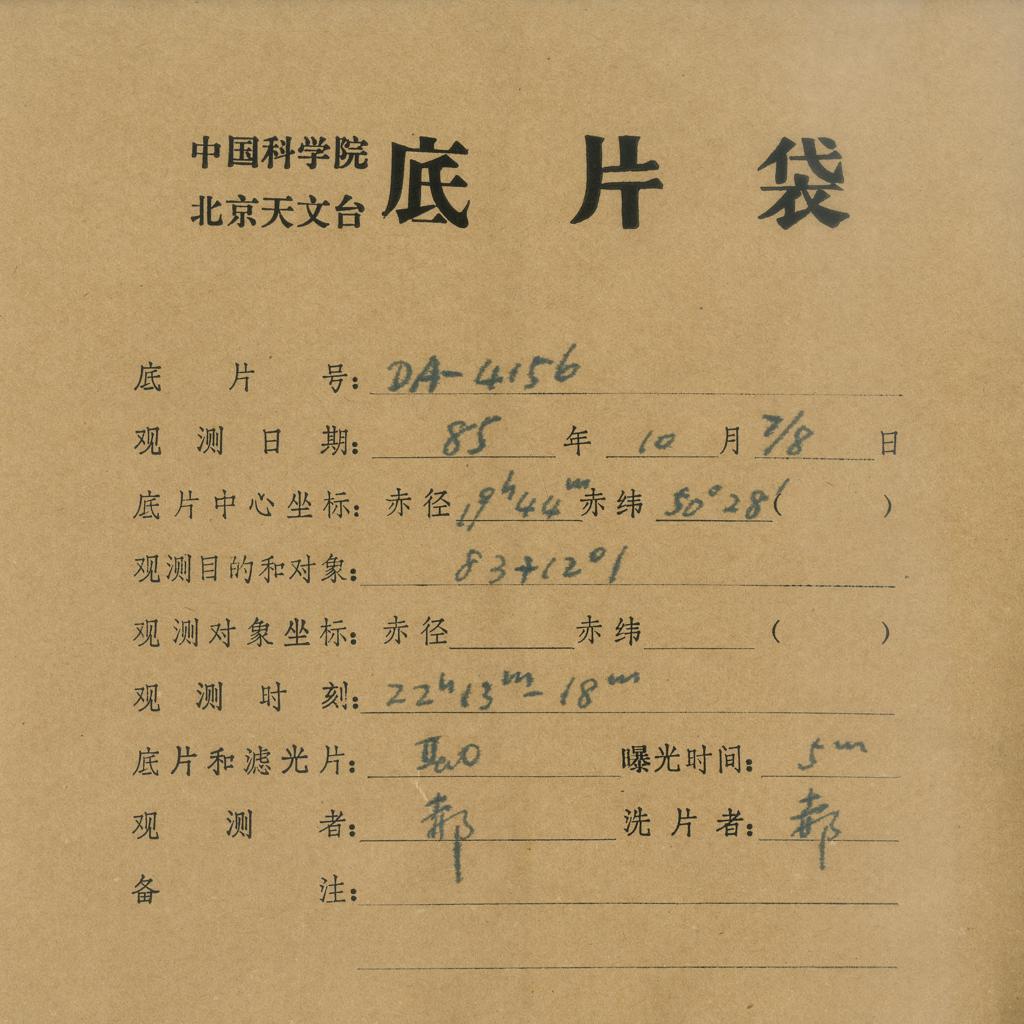 中国科学院
北京天文台
底片袋
底片号：DA-4156
观测日期：85年10月7/8日
底片中心坐标：赤径19ʰ44ᵐ赤纬50°28′( )
观测目的和对象：83+12°1
观测对象坐标：赤径 赤纬 ( )
观测时刻：22ʰ13ᵐ-18ᵐ
底片和滤光片：IIaO 曝光时间：5ᵐ
观测者：郝 洗片者：郝
备注：